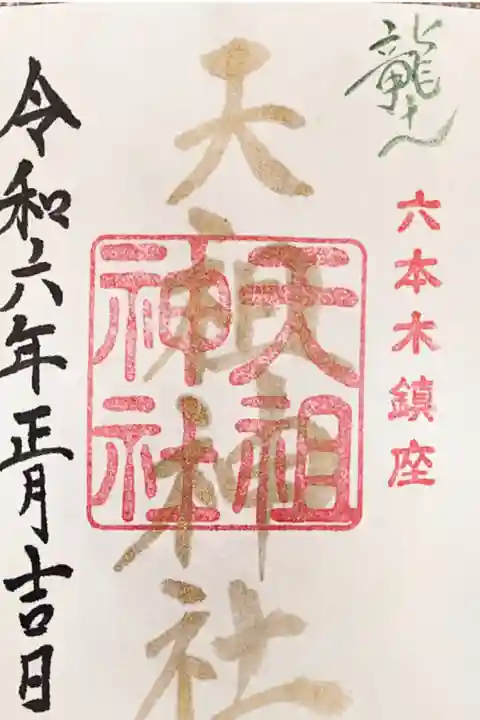 龍
六本木鎮座
天祖神社
天祖
神社
令和六年正月吉日